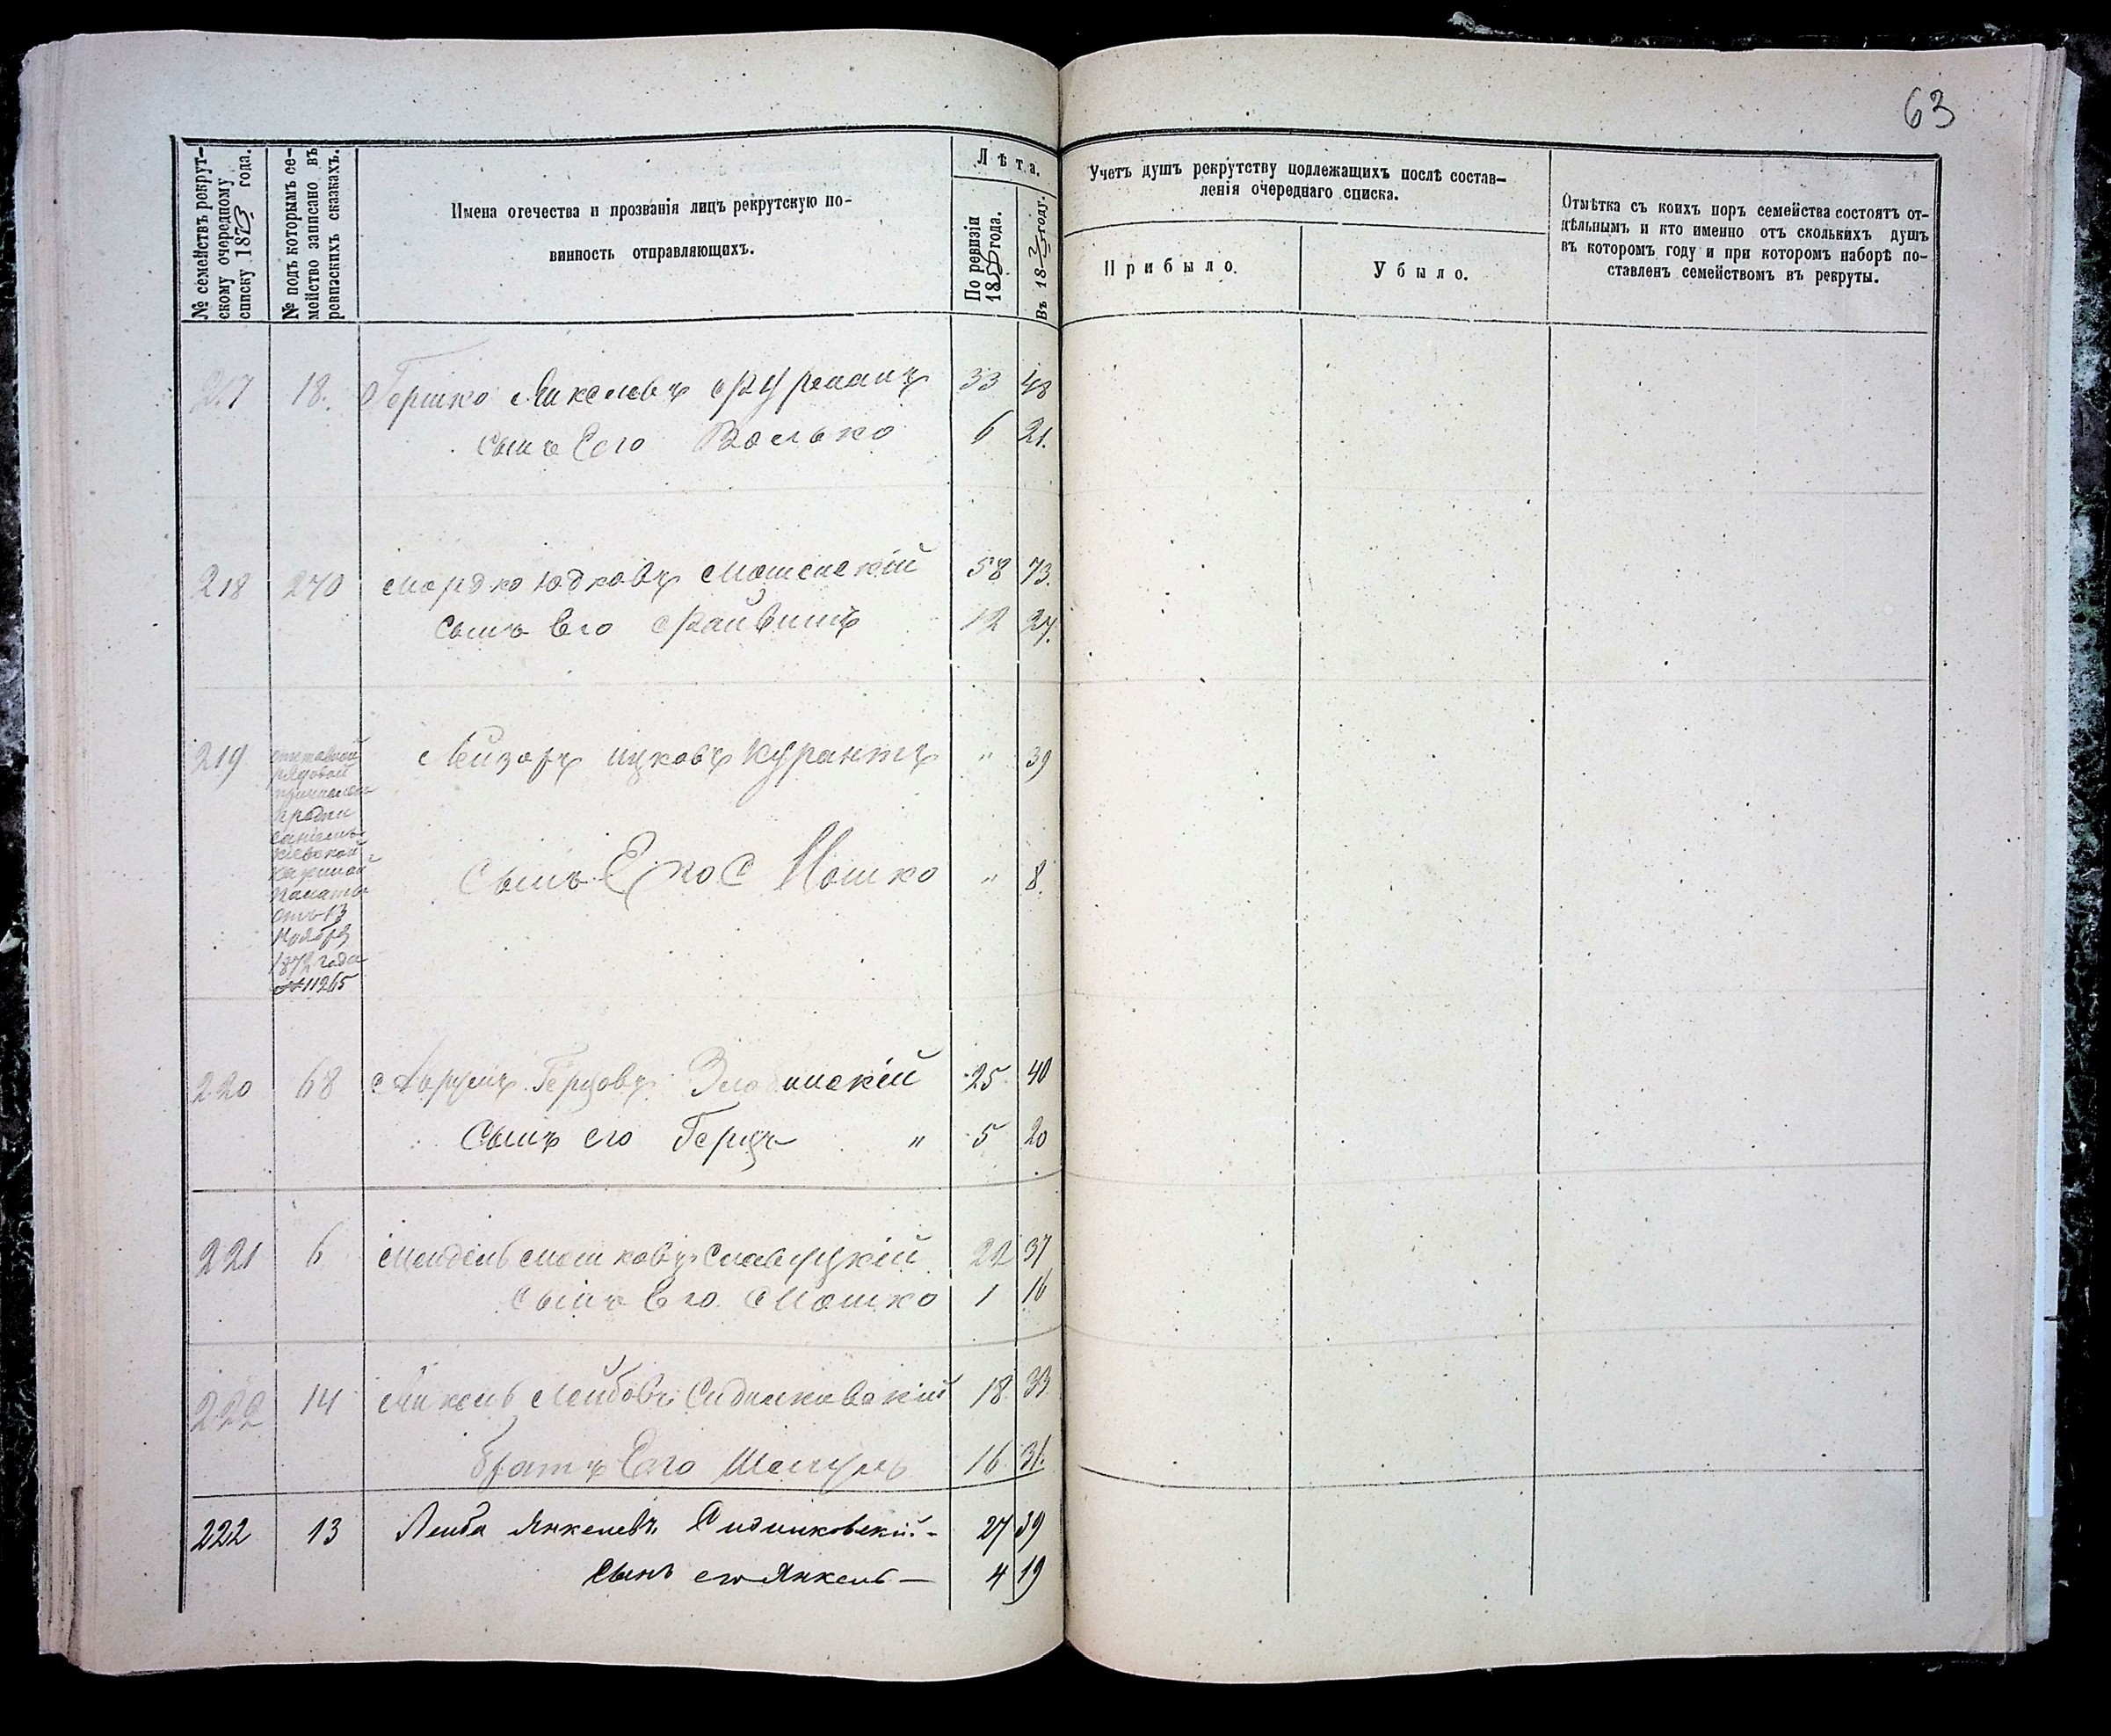 63
№ семействъ рекрут-
скому очередному
списку 1873 года.
№ подъ которымъ се-
мейство записано въ
ревизскихъ сказкахъ.
Имена отечества и прозванія лицъ рекрутскую по-
винность отправляющихъ.
Лѣта.
По ревизіи
1858 года.
Въ 1873 году.
Учетъ душъ рекрутству подлежащихъ послѣ состав-
ленія очереднаго списка.
Прибыло.
Убыло.
Отмѣтка съ коихъ поръ семейства состоятъ от-
дѣльнымъ и кто именно отъ сколькихъ душъ
въ котором году и при которомъ наборѣ по-
ставленъ семействомъ въ рекруты.
217 18. Гершко Янкелевъ Фурманъ 33 48
сынъ Его Волько 6 21.
218 270 Мордко Юдковъ Мошенскій 58 73.
Сынъ Его Файвишъ 12 27.
219 Лейзоръ Ицковъ Курантъ " 39
отставной
рядовой
причислен
предпи
саніемъ
Кіевской
Казенной
Палаты
отъ 13
Ноября
1872 года
№ 11265
Сынъ Его Мошко " 8.
220 68 Аврумъ Герцовъ 25 40
Сынъ его Герцъ " 5 20
221 6 Мендель Мошковъ Славуцкій 22 37
Сынъ Его Мошко 1 16
222 14 Янкель Лейбовъ Сидликовскій 18 33
братъ Его Шмуль 16 31.
222 13 Лейба Янкелевъ Сидликовскій - 27 39
Сынъ его Янкель — 4 19